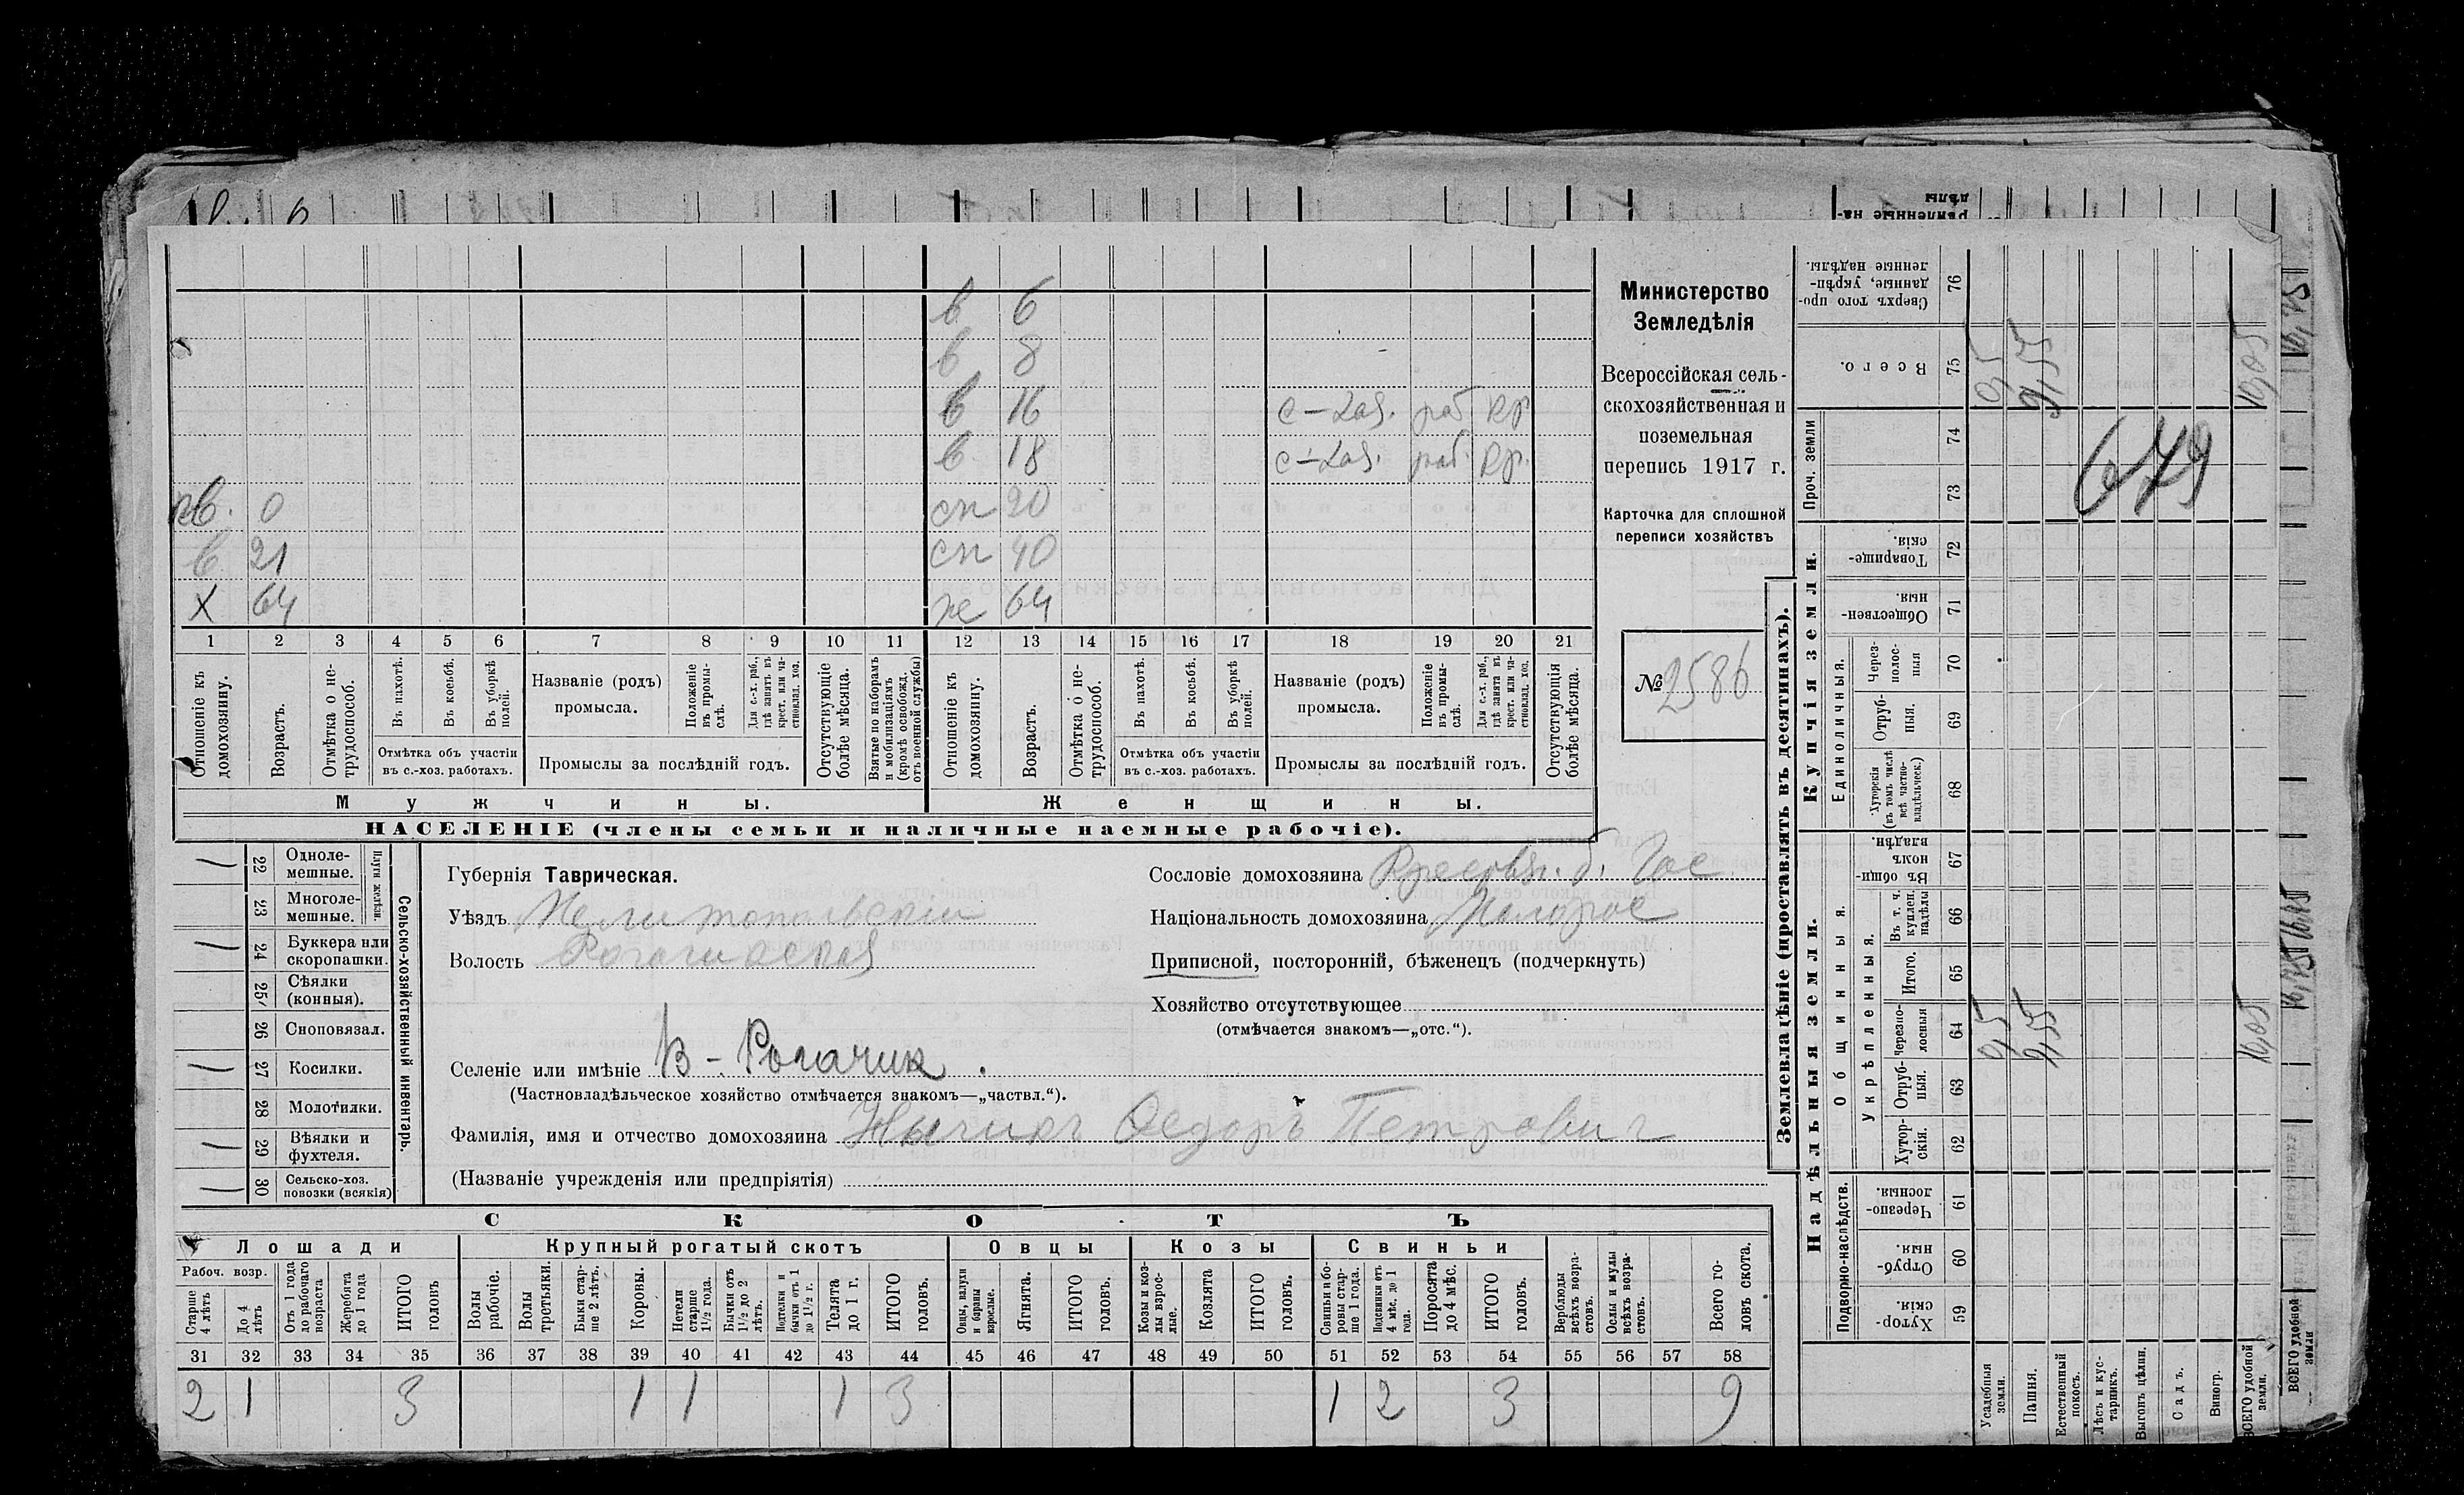 в 6
в 8
в 16 раб кр
в 18 раб. кр.
0 сн 20
в 21 сн 40
х 64 ж 64
1 2 3 4 5 6 7 8 9 10 11 12 13 14 15 16 17 18 19 20 21
Отношеніе къ домохозяину.
Возрастъ.
Отмѣтка о не-трудоспособ.
Въ пахотѣ.
Въ косьбѣ.
Въ уборкѣ полей.
Отмѣтка объ участіи
въ с.-хоз. работахъ.
Названіе (родъ)
промысла.
Положеніе въ промы-слѣ.
Для с.-х. раб., гдѣ занятъ въ крест. или ча-стновлад. хоз.
Промыслы за послѣдній годъ.
Отсутствующіе болѣе мѣсяца.
Взятые по наборамъ и мобилизаціямъ (кромѣ освобожд. отъ военной службы)
Отношеніе къ домохозяину.
Возрастъ.
Отмѣтка о не-трудоспособ.
Въ пахотѣ.
Въ косьбѣ.
Въ уборкѣ полей.
Отмѣтка объ участіи
въ с.-хоз. работахъ.
Названіе (родъ)
промысла.
Положеніе въ промы-слѣ.
Для с.-х. раб., гдѣ занята въ крест. или ча-стновлад. хоз.
Промыслы за послѣдній годъ.
Отсутствующія болѣе мѣсяца.
Мужчины.
Женщины.
НАСЕЛЕНІЕ (члены семьи и наличные наемные рабочіе).
Министерство
Земледѣлія
Всероссійская сель-
скохозяйственная и
поземельная
перепись 1917 г.
Карточка для сплошной
переписи хозяйствъ
№ 2586
Сельско-хозяйственный инвентарь.
Плуги желѣзн.
22 Одноле-мешные.
23 Многоле-мешные.
24 Буккера или скоропашки.
25 Сѣялки (конныя).
26 Сноповязал.
27 Косилки.
28 Молотилки.
29 Вѣялки и фухтеля.
30 Сельско-хоз. повозки (всякія)
Губернія Таврическая.
Уѣздъ Мелитопольскій
Волость Рогачикская
Селеніе или имѣніе В-Рогачик.
(Частновладѣльческое хозяйство отмѣчается знакомъ—„частвл.“).
Фамилія, имя и отчество домохозяина Федоръ Петрович
(Названіе учрежденія или предпріятія)
Сословіе домохозяина
Національность домохозяина Малорос
Приписной, посторонній, бѣженецъ (подчеркнуть)
Хозяйство отсутствующее
(отмѣчается знакомъ—„отс.“).
СКОТЪ
Лошади
Крупный рогатый скотъ
Овцы
Козы
Свиньи
Рабоч. возр.
Старше 4 лѣтъ
До 4 лѣтъ
Отъ 1 года до рабочаго возраста
Жеребята до 1 года
ИТОГО головъ
Волы рабочіе.
Волы третьяки.
Быки стар-ше 2 лѣтъ.
Коровы.
Нетели старше 1½ года.
Бычки отъ 1½ до 2 лѣтъ.
Подтелки и бычки отъ 1 до 1½ г.
Телята до 1 г.
ИТОГО головъ.
Овцы, валухи и бараны взрослые.
Ягнята.
ИТОГО головъ.
Козы и коз-лы взрос-лые.
Козлята
ИТОГО головъ.
Свиньи и бо-ровы стар-ше 1 года.
Подсвинки отъ 4 мѣс. до 1 года.
Поросята до 4 мѣс.
ИТОГО головъ.
Верблюды всѣхъ возра-стовъ.
Ослы и мулы всѣхъ возра-стовъ.
Всего го-ловъ скота.
31 32 33 34 35 36 37 38 39 40 41 42 43 44 45 46 47 48 49 50 51 52 53 54 55 56 57 58
2 1 3 1 1 1 3 1 2 3 9
Землевладѣніе (проставлять въ десятинахъ).
Купчія земли.
Надѣльныя земли.
Проч. земли
Единоличныя.
Общинныя.
Укрѣпленныя.
Подворно-наслѣдств.
Сверхъ того про-данные, укрѣп-ленные надѣлы. 76
Всего. 75
74
73
Товарище-скія. 72
Обществен-ныя. 71
Через-полос-ныя 70
Отруб-ныя. 69
Хуторскія (въ томъ числѣ всѣ частно-владѣльческ.) 68
Въ общин-номъ владѣн. 67
Въ т. ч. куплен. надѣлы 66
Итого. 65
Черезпо-лосныя 64
Отруб-ныя. 63
Хутор-скія. 62
Черезпо-лосныя. 61
Отруб-ныя. 60
Хутор-скія. 59
Усадебныя земли.
Пашня.
Естественный покосъ.
Лѣсъ и кус-тарникъ.
Выгонъ цѣлин.
Садъ.
Виногр.
ВСЕГО удобной земли.
ВСЕГО удобной земли
679
10,05
10,05